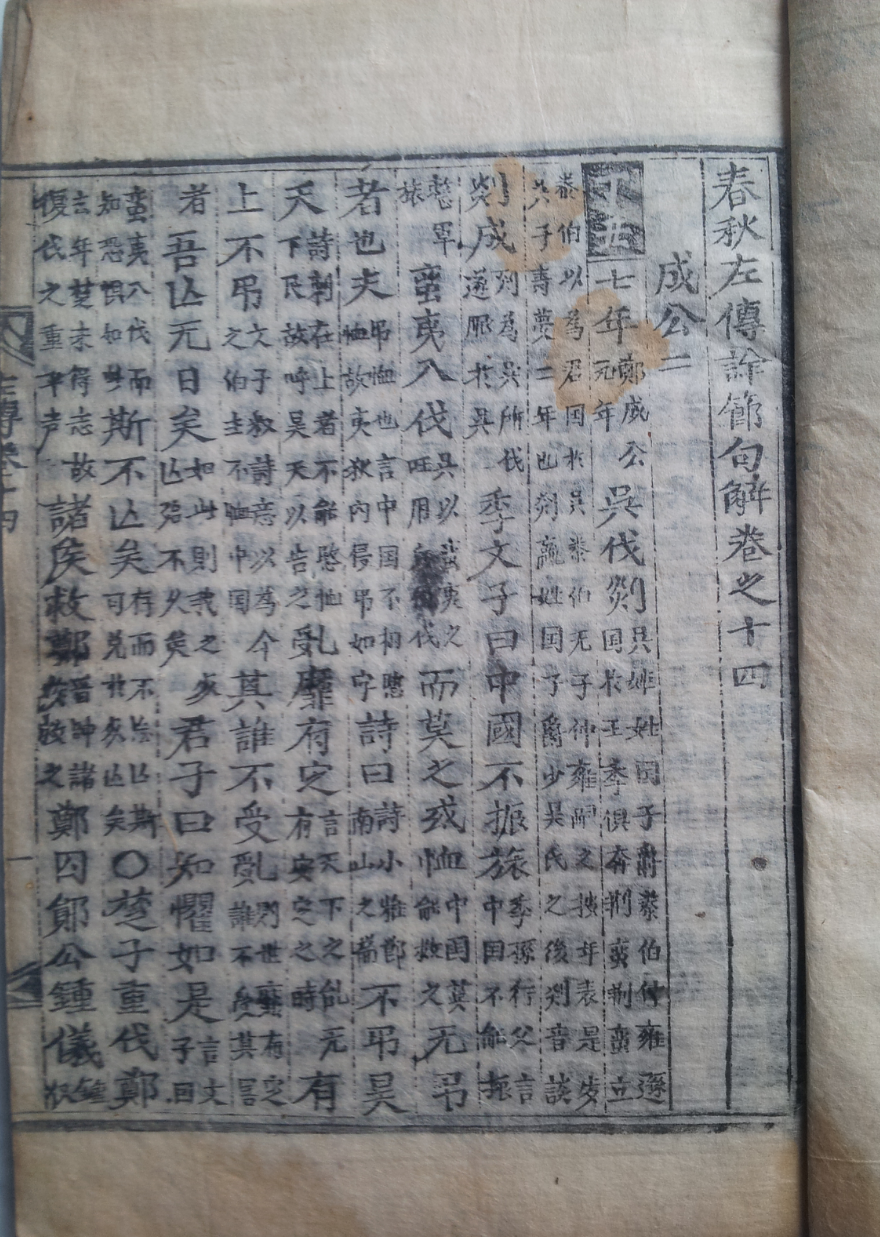 春秋左傳詳節句解卷之十四
成公二
七年鄭成公元年吳伐郯吳姬姓国子爵泰伯仲雍遜国於王季俱奔荆蛮荆蛮立
泰伯以為君国於吳泰伯无子仲雍嗣之按年表是歲吳子壽夢二年也郯嬴姓国子爵少昊氏之後郯音談
郯成郯為吳所伐遂服於吳季文子曰中國不振旅季孫行父言中国不能振
整軍旅蛮夷入伐吳以蛮夷之伐而莫之或恤中国莫能救之无吊
者也夫吊恤也言中国不相愍恤故夷狄内侵吊如字詩曰詩小雅節南山之篇不吊昊
天詩刺在上者不能愍恤下民故呼昊天以告之乱靡有定言天下之乱无有安定之時有
上不吊文子叙詩意以為今之伯主不恤中国其誰不受亂誰不受其害
者吾亾元日矣如此則我之亾恐不久矣君子曰知懼如是言文子曰
蛮夷入伐而知恐惧如此斯不亾矣存而不忘亾斯可免於亾矣〇楚子重伐鄭
去年楚未得志故復伐之重平声諸侯救鄭晋帥諸侯救之鄭囚鄖公鍾儀鍾
左傳卷十四
一